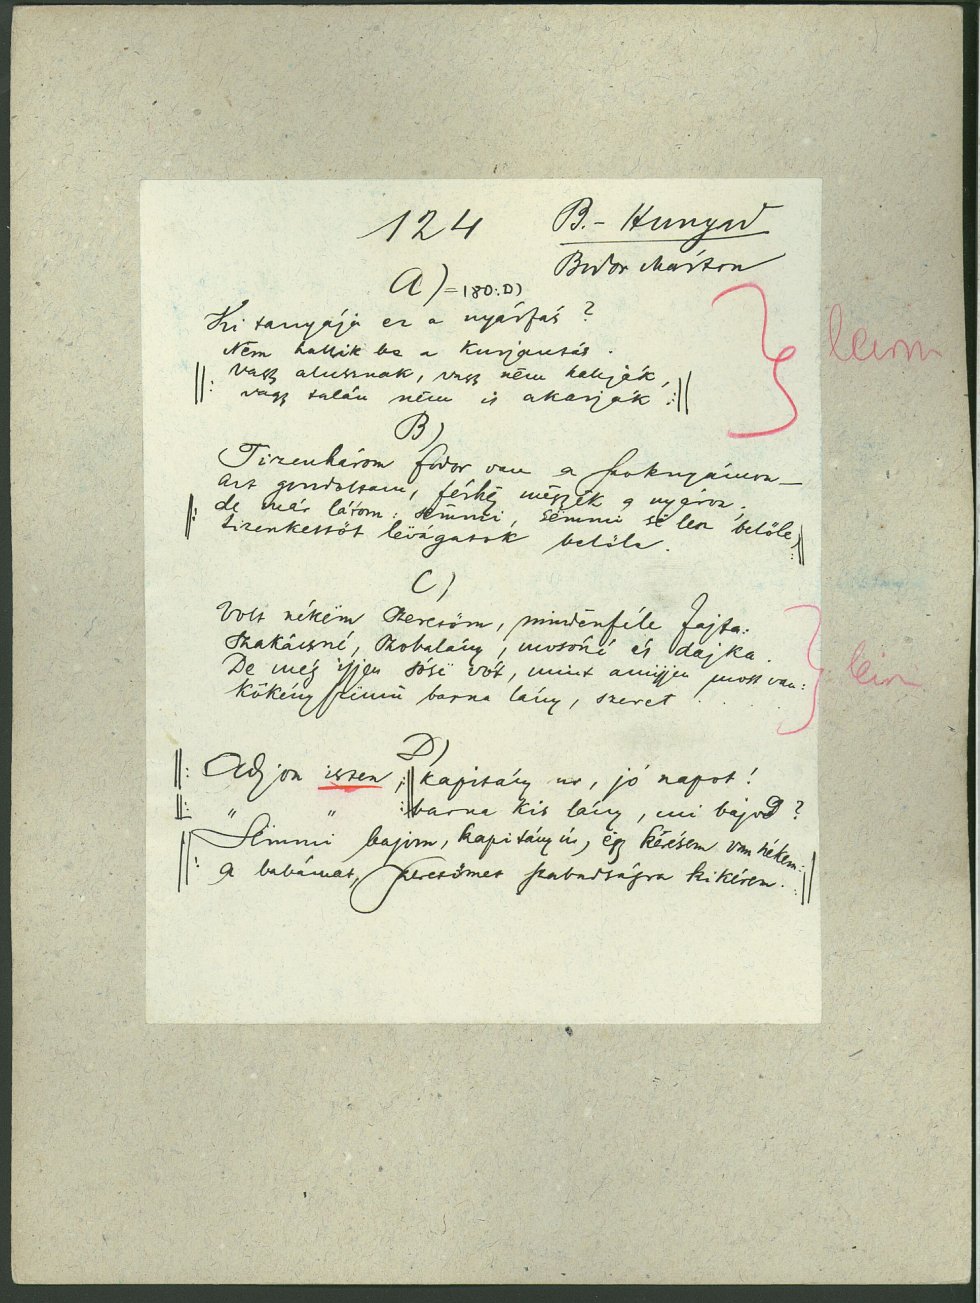 124
B.- Hunyad
Bodor Márton
A) = 180.D)
Ki tanyája ez a nyárfás?
Nem hallik be a kurjantás.
‖: vagy alusznak, vagy nëm hallják,
vagy talán nëm is akarják :‖
B)
Tizenhárom fodor van a szoknyámon –
azt gondoltam, férhë mëgyëk a nyáron,
‖: de már látom: sëmmi, sëmmi së lesz belőle,
tizenkettőt lëvágatok belőle. :‖
C)
Volt nékëm szeretőm, mindënféle fajta:
szakácsné, szobalány, mosóné és dajka.
De még ijjen sósë vót, mint amijjen most van:
kökény szëmű barna lány, szeret . . .
D)
‖: Adjon isten, :‖ kapitány ur, jó napot!
‖: " " :‖ barna kis lány, mi bajod?
‖: Sëmmi bajom, kapitány úr, ëgy kérésem van nékem:
a babámat, szeretőmet szabadságra kikérem. :‖